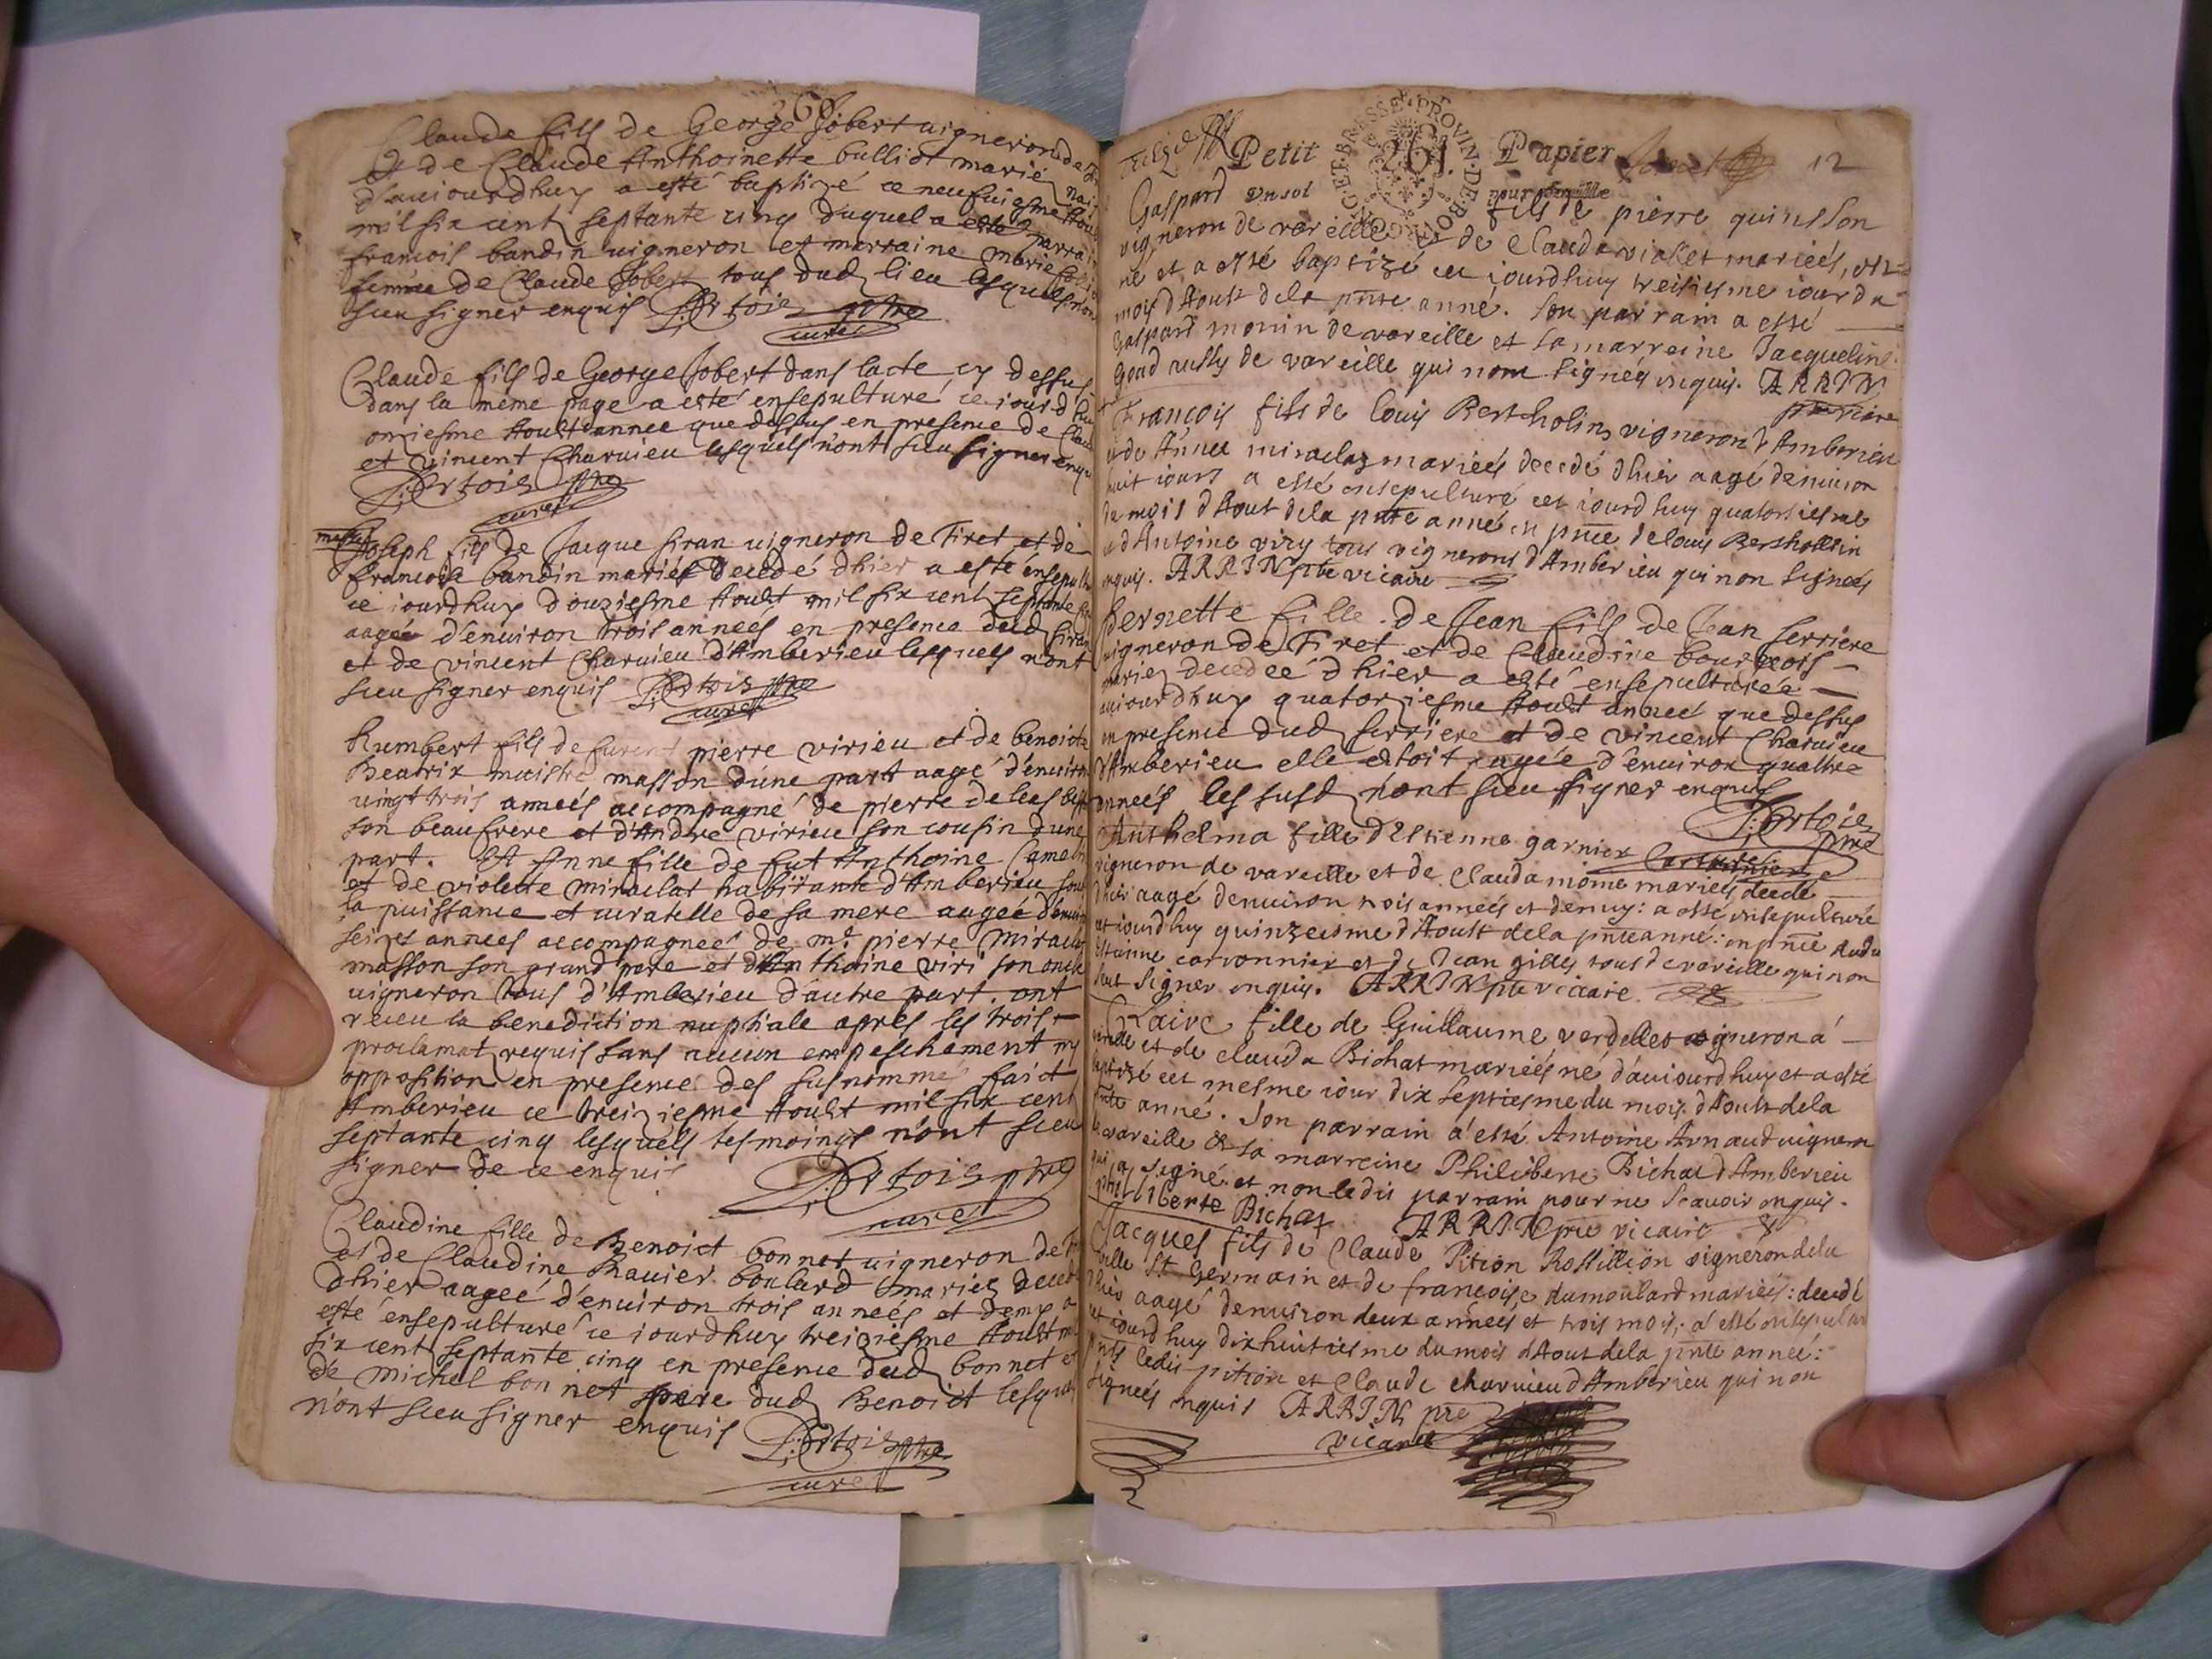 260
Claude fils de George Jobert uigneron de
et de Claude Anthoinette bulliot mariez
d'auiourdhuy a esté baptizé ce neufuiesme Aoust
mil six cent septante cinq duquel a esté parrain
francois baudin uigneron et marraine marie
femme de Claude Jobert tous dud lieu lesquels n'ont
sceu signer enquis P. Ortois ptre
curé
Claude fils de George Jobert dans lacte cy dessus
dans la même page a esté ensepulturé ce iourdhuy
onziesme Aoust annee que dessus en presence de
et vincent Charuieu lesquels n'ont sceu signer
P. Ortois ptre
curé
Joseph fils de Jacque siran uigneron de Tiret et de
francoise baudin mariés decedé dhier a esté
ce iourdhuy douziesme Aoust mil six cent septante
aagée d'enuiron trois annees en presence dud siran
et de vincent Charuieu d'Amberieu lesquels n'ont
sceu signer enquis P. Ortois ptre
curé
humbert fils de pierre virieu et de benoicte
Beatrix maistre masson d'une part aagé d'enuiron
uingt trois années accompagné de pierre
son beaufrere et d'Andre virieu son cousin dune
part. Et Anne fille de fut Anthoine
et de violette miraclat habitante d'Amberieu sous
la puissance et curatelle de sa mere aagée d'enuiron
seizes annees accompagnee de me pierre
masson son grand pere et d'Anthoine viri son oncle
uigneron tous d'Amberieu d'autre part. ont
receu la benediction nuptiale apres les trois
proclamat requis sans aucun empeschement ny
opposition en presence des susnommés faict
Amberieu ce treiziesme Aoust mil six cent
septante cinq lesquels tesmoings n'ont sceu
signer de ce enquis P. Ortois ptre
curé
Claudine fille de Benoict bonnet uigneron de
et de Claudine Rauier boulard mariez
dhier aagée d'enuiron trois années et demy a
esté ensepulturé ce iourdhuy treiziesme Aoust mil
six cent septante cinq en presence dud bonnet et
de michel bonnet pere dud Benoict
n'ont sceu signer enquis P. Ortois ptre
curé
Petit 261 Papier 12
Gaspard un sol fils de pierre quinsson
vigneron de vareille et de Clauda violet mariés,
né et a esté baptizé cet iourdhuy treiziesme iour du
mois dAoust dela pnte anné. son parrain a esté
Gaspard monin de vareille et sa marreine Jacqueline
de vareille qui nont signés enquis. ARRIN
ptre vicaire
François fils de louis Bertholin vigneron d'Amberieu
et de Annee miraclaz mariés decedé dhier aagé denuiron
huit iours a esté ensepulturé cet iourdhuy quatorsiesme
du mois dAout dela pnte anné en pnce de louis Berthollin
et d'Antoine viry tous vignerons d'Amberieu qui non signés
enquis. ARRIN ptre vicaire
bernette fille de Jean fils de Jean serriere
uigneron de Tiret et de Claudine bourgeois
mariez decedée dhier a esté ensepulturée
auiourdhuy quatorziesme Aoust annee que dessus
en presence dud serriere et de vincent Charuieu
d'Amberieu elle estoit agée d'enuiron quattre
années les susd n'ont sceu signer enquis
P. Ortois
ptre
Anthelma fille d'Estienne garnier
vigneron de vareille et de Clauda mariés decedé
dhier aagé denuiron trois années et demy: a esté ensepulturé
cet iourdhuy quinzeiesme dAoust dela pnte anné: en pnce dudit
Estienne et de Jean gilles tous de vareille qui non
seut signer enquis. ARRIN ptre vicaire
Claire fille de Guillaume verdellet uigneron a
et de clauda Bichat mariés né d'auiourdhuy et a esté
baptizé cet mesme iour dix septiesme du mois dAoust dela
pnte anné. Son parrain a esté Antoine Arnaud uigneron
de vareille et sa marreine Philiberte Bichat dAmberieu
qui a signé et non ledit parrain pour ne scauoir enquis.
philiberte Bichat ARRIN ptre vicaire
Jacques fils de Claude Pition Rossillion vigneron dela
ville St Germain et de françoise dumoulard mariés: decedé
dhier aagé denuiron deux années et trois mois, a esté ensepulturé
cet iourdhuy dixhuitiesme du mois dAout dela pnte année:
pnts ledit pition et Claude charuieu d'Amberieu qui non
signés enquis ARRIN pre
vicaire